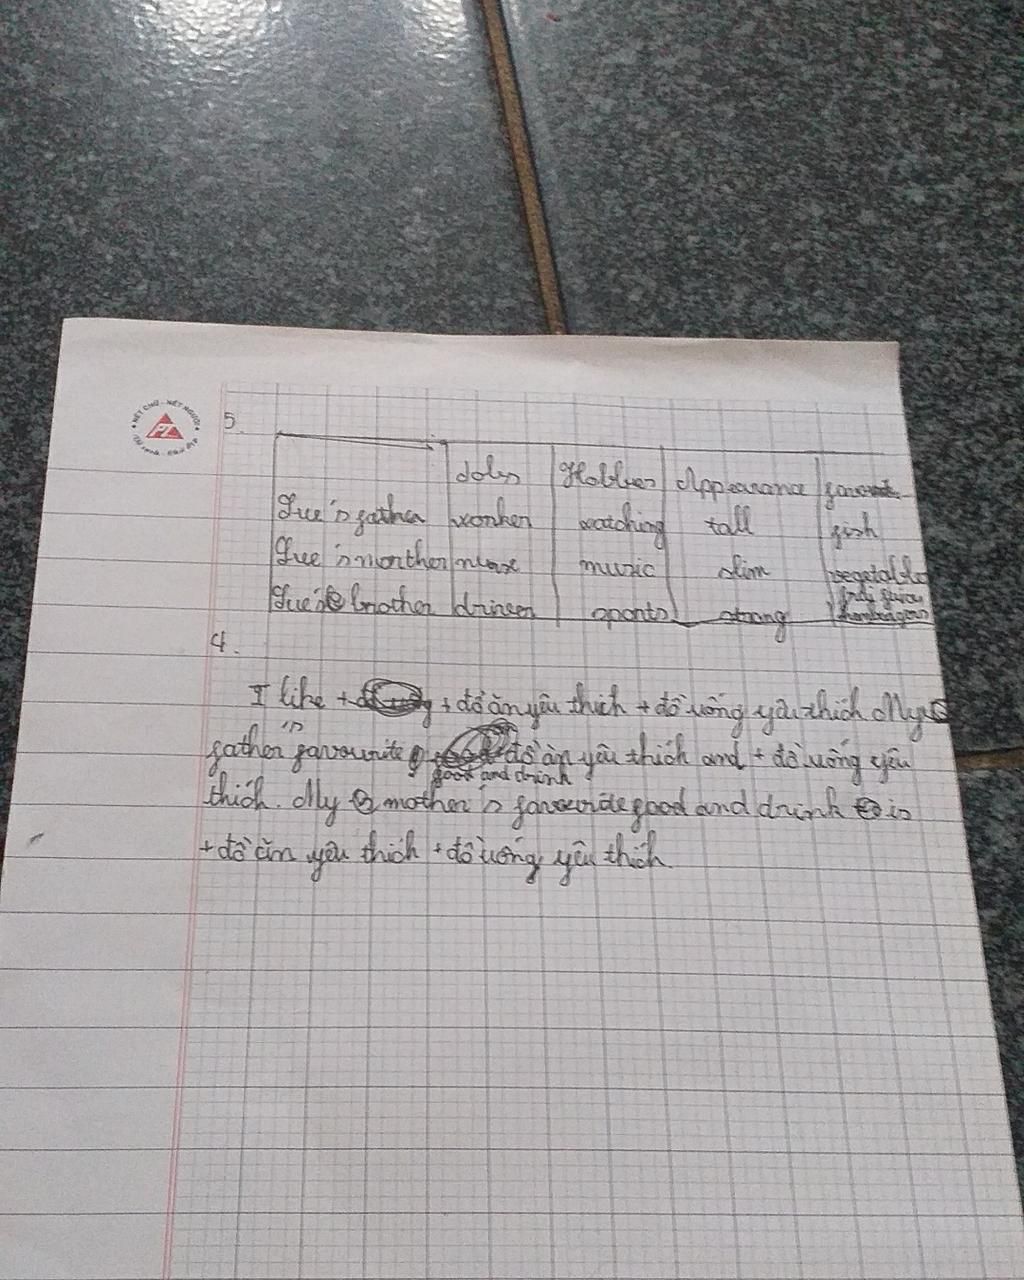 NÉT CHỮ - NẾT NGƯỜI
5.
Jobs Hobbies Appearance
Sue's father worker watching tall fish
Sue's monther nurse music slim
Sue's brother driver sports strong
4.
I like + đồ ăn yêu thích + đồ uống yêu thích. My
's
father favourite đồ ăn yêu thích and + đồ uống yêu
food and drink
thích. My mother's favourite food and drink is
+ đồ ăn yêu thích + đồ uống yêu thích.